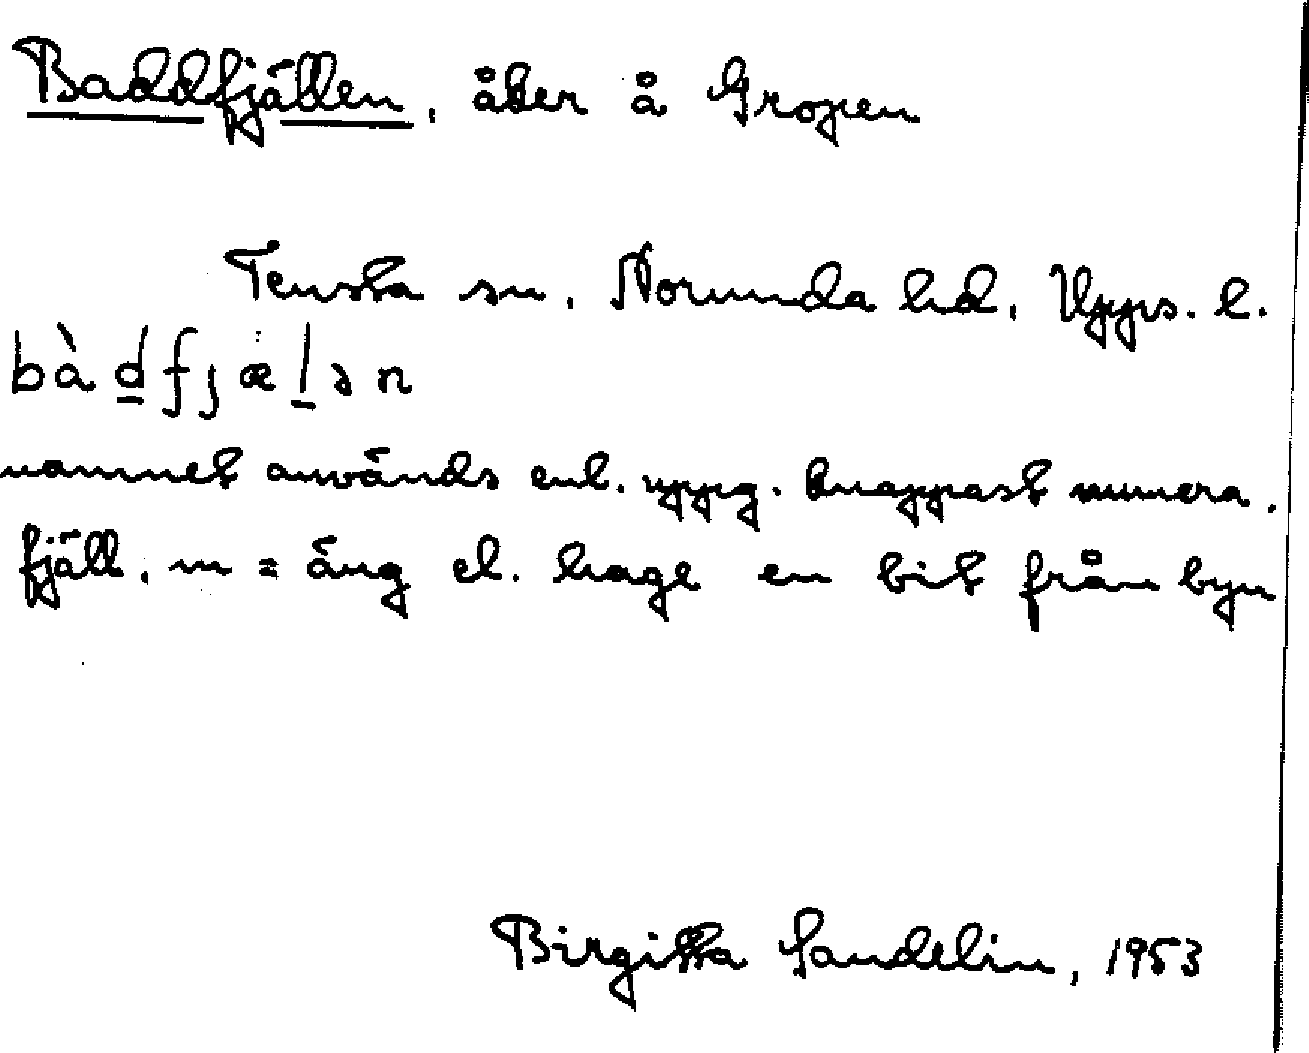 Baddfjällen, åker å Gropen
Tensta sn, Norunda hd, Upps. l.
bàd̲fjæl̲ən
namnet används enl. uppg. knappast numera.
fjäll, m = äng el. hage en bit från byn
Birgitta Sandelin, 1953